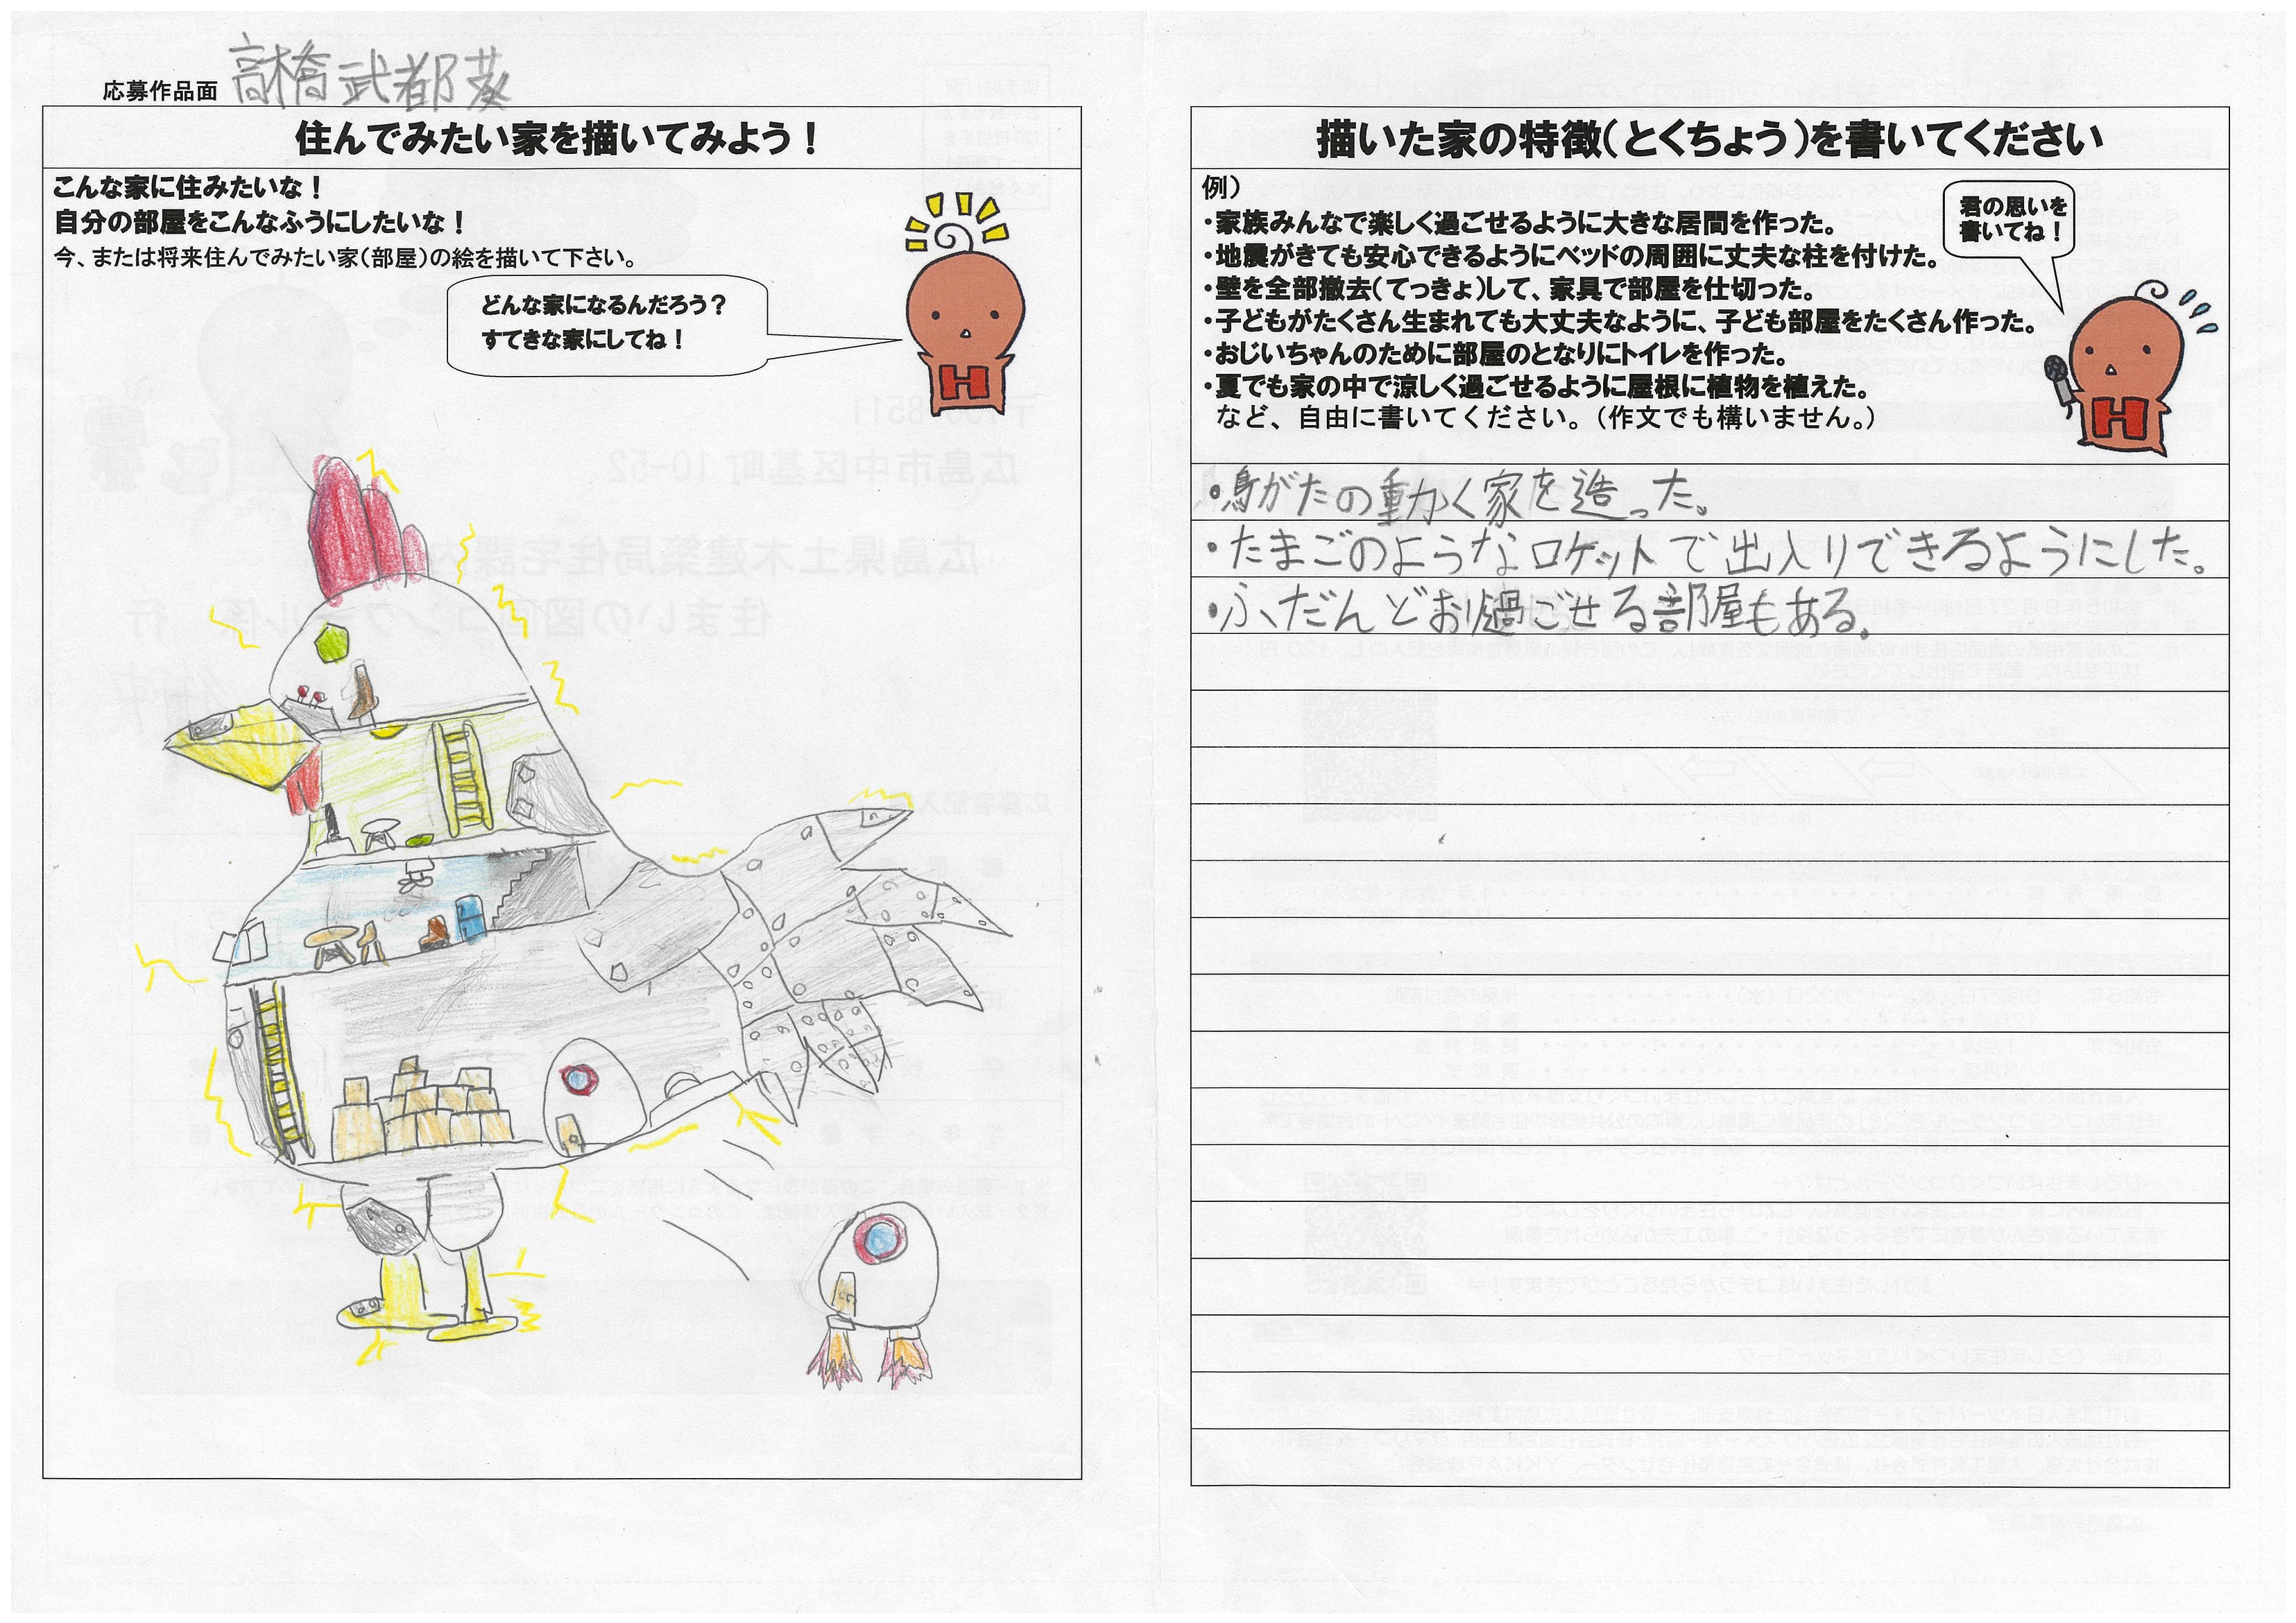 応募作品面 高橋武都葵
住んでみたい家を描いてみよう!
こんな家に住みたいな!
自分の部屋をこんなふうにしたいな!
今、または将来住んでみたい家(部屋)の絵を描いて下さい。
どんな家になるんだろう?
すてきな家にしてね!
H
描いた家の特徴(とくちょう)を書いてください
例)
・家族みんなで楽しく過ごせるように大きな居間を作った。
・地震がきても安心できるようにベッドの周囲に丈夫な柱を付けた。
・壁を全部撤去(てっきょ)して、家具で部屋を仕切った。
・子どもがたくさん生まれても大丈夫なように、子ども部屋をたくさん作った。
・おじいちゃんのために部屋のとなりにトイレを作った。
・夏でも家の中で涼しく過ごせるように屋根に植物を植えた。
など、自由に書いてください。(作文でも構いません。)
君の思いを
書いてね!
H
・鳥がたの動かく家を造った。
・たまごのようなロケットで出入りできるようにした。
・ふだんどお過ごせる部屋もある。